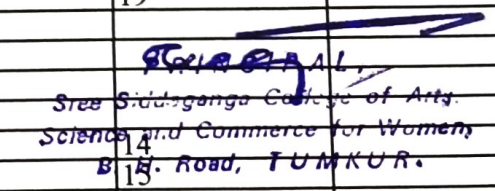 PRINCIPAL,
Sree Siddaganga College of Arts.
Science and Commerce for Women,
14
B. H. Road, TUMKUR.
15